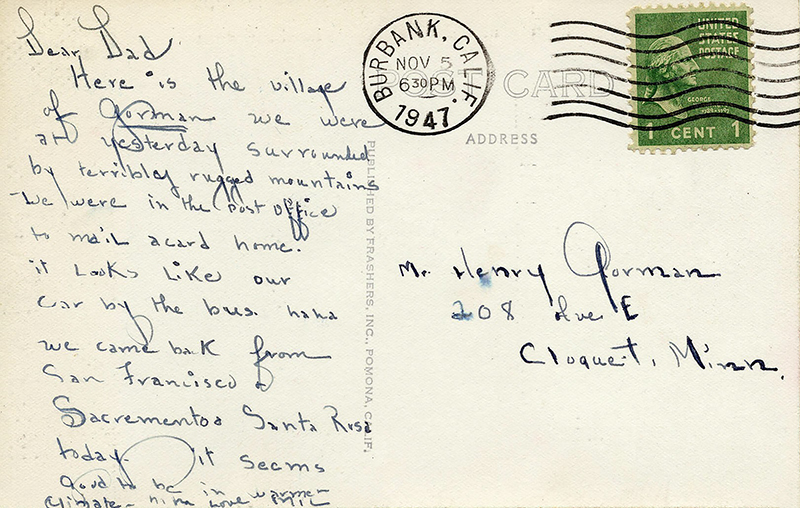 Dear Dad
Here is the village
of Gorman we were
at yesterday surrounded
by terribly rugged mountains
we were in the post office
to mail a card home.
it Looks Like our
car by the bus. haha
we came back from
San Francisco &
Sacramentoo Santa Rosa
today. it seems
good to be in warmer
climate - Love
PUBLISHED BY FRASHERS, INC., POMONA, CALIF.
BURBANK, CALIF.
NOV 5
6 30 PM
1947
POST CARD
ADDRESS
UNITED
STATES
POSTAGE
GEORGE
1 CENT 1
Mr Henry Gorman
208 Ave E
Cloquet, Minn.